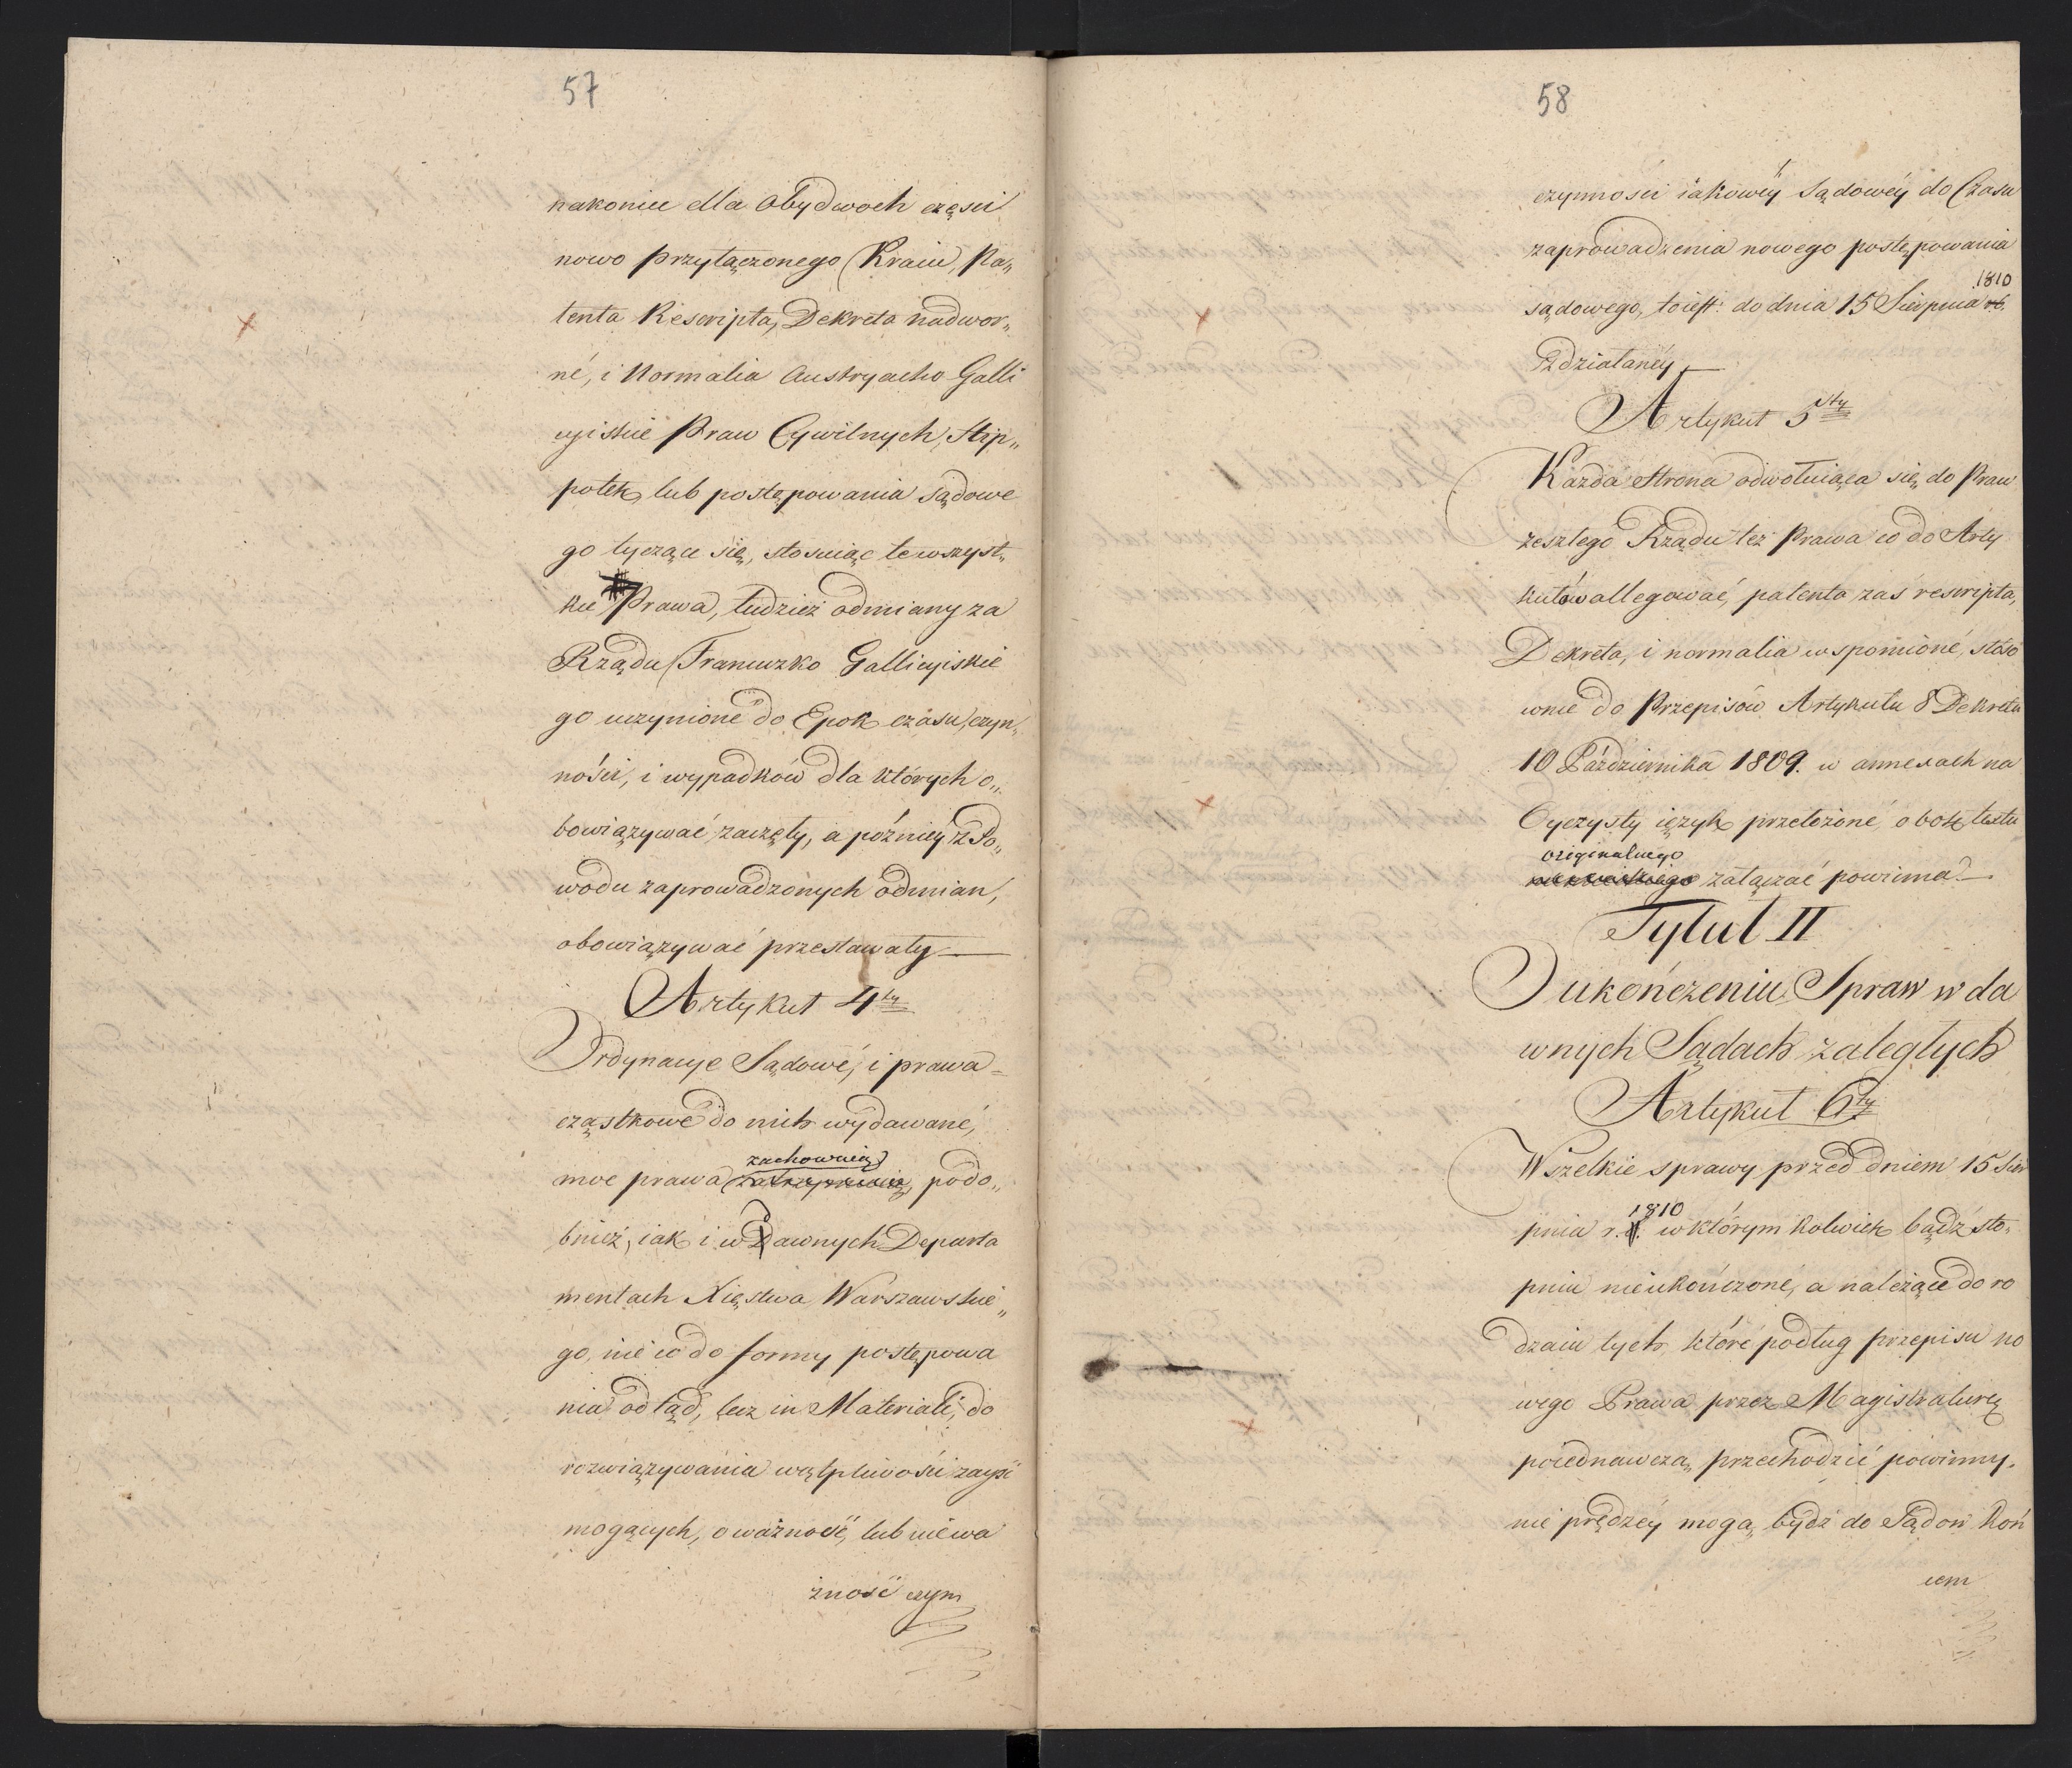 57
nakoniec dla obydwóch części
nowo przyłączonego Kraiu, Pa„
tenta Rescripta, Dekreta nadwor„
né, i Normalia Austryacko Galli
cyiskie Praw Cywilnych, Hip„
potek, lub postępowania sądowe
go tyczące się, stosuiąc te wszyst„
kie Prawa, tudzież odmiany za
Rządu Francuzko Gallicyiskie
go uczynioné do Epok czasu, czyn„
ności, i wypadków dla których o„
bowiązywać zaczęły, a późniéy z Po„
wodu zaprowadzonych odmian,
obowiązywać przestawały
Artykuł 4ty
Ordynacye Sądowé, i prawa
cząstkowé do nich wydawané,
zachowuią
moc prawa podo„
bnież, iak i w Dawnych Departa
mentach Xięstwa Warszawskie„
go, nie co do formy postępowa
nia odtąd, lecz in Materiali, do
rozwiązywania wątpliwości zayść
mogących, o ważność, lub niewa
żność czym
58
czynności iakowéy Sądowéy do Czasu
zaprowadzenia nowego postępowania
1810
sądowego, toiest: do dnia 15 Sierpnia r.b.
zdziałanéy
Artykuł 5ty
Każda Strona odwołuiąca się do Praw
zeszłego Rządu też Prawa co do Arty
kułów allegować, patenta zaś rescripta,
Dekreta, i normalia wspomioné, stóso
wnie do Przepisów Artykułu 8 Dekretu
10 Października 1809. w annexach na
Oyczysty ięzyk przełożoné, obok textu
originalnego
załączać powinna
Tytuł II
O ukończeniu Spraw w da
wnych Sądach zaległych
Artykuł 6ty
Wszelkie sprawy przed dniem 15 Sier
1810
pnia r. w którym kolwiek bądź sto„
pniu nieukończoné, a należące do ro
dzaiu tych, któré podług przepisu no
wego Prawa przez Magistraturę
poiednawczą, przechodzić powinny,
nie prędzéy mogą bydź do Sądow koń
cem